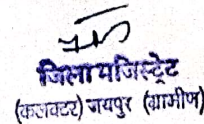 जिला मजिस्ट्रेट
(कलक्टर) जयपुर (ग्रामीण)